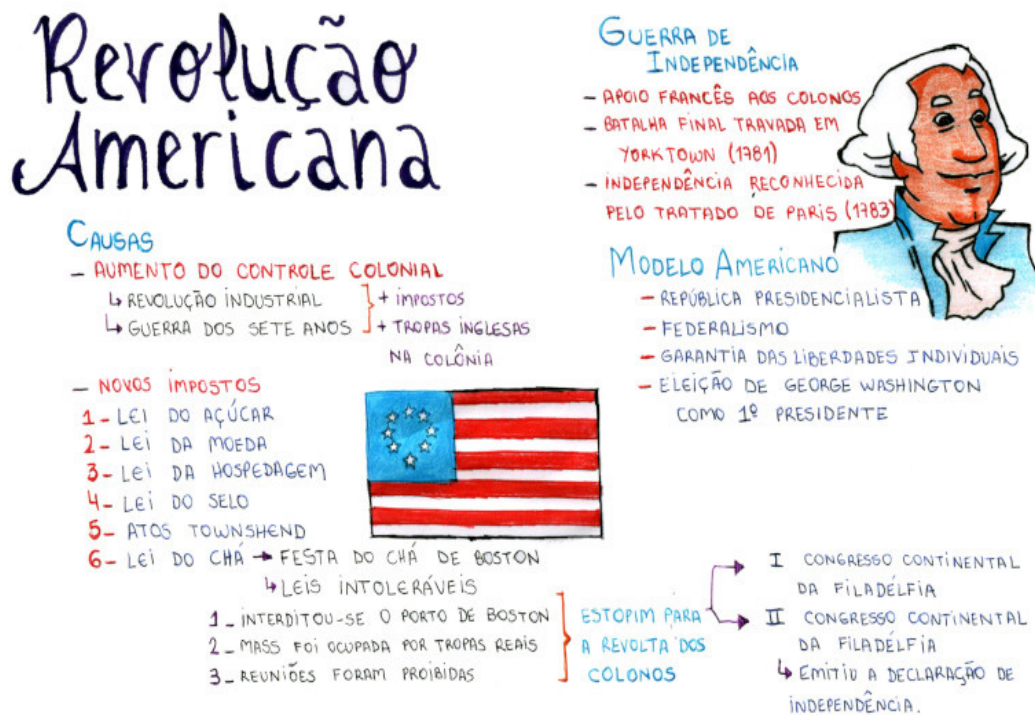 Revolução
Americana
CAUSAS
- AUMENTO DO CONTROLE COLONIAL
↳ REVOLUÇÃO INDUSTRIAL
↳ GUERRA DOS SETE ANOS
+ IMPOSTOS
+ TROPAS INGLESAS
NA COLÔNIA
- NOVOS IMPOSTOS
1- LEI DO AÇÚCAR
2- LEI DA MOEDA
3- LEI DA HOSPEDAGEM
4- LEI DO SELO
5- ATOS TOWNSHEND
6- LEI DO CHÁ → FESTA DO CHÁ DE BOSTON
↳ LEIS INTOLERÁVEIS
1- INTERDITOU-SE O PORTO DE BOSTON
2- MASS FOI OCUPADA POR TROPAS REAIS
3- REUNIÕES FORAM PROIBIDAS
ESTOPIM PARA
A REVOLTA DOS
COLONOS
I CONGRESSO CONTINENTAL
DA FILADÉLFIA
II CONGRESSO CONTINENTAL
DA FILADÉLFIA
↳ EMITIU A DECLARAÇÃO DE
INDEPENDÊNCIA.
GUERRA DE
INDEPENDÊNCIA
- APOIO FRANCÊS AOS COLONOS
- BATALHA FINAL TRAVADA EM
YORKTOWN (1781)
- INDEPENDÊNCIA RECONHECIDA
PELO TRATADO DE PARIS (1783)
MODELO AMERICANO
- REPÚBLICA PRESIDENCIALISTA
- FEDERALISMO
- GARANTIA DAS LIBERDADES INDIVIDUAIS
- ELEIÇÃO DE GEORGE WASHINGTON
COMO 1º PRESIDENTE